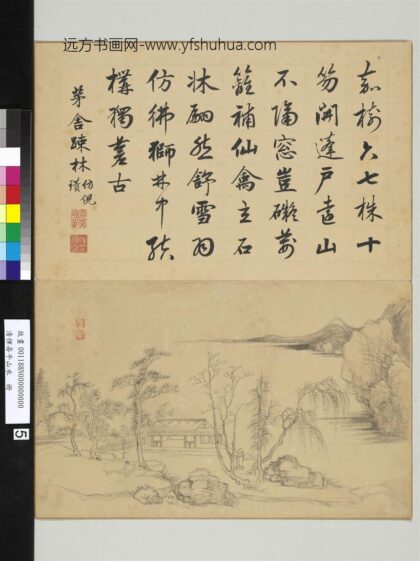 远方书画网-www.yfshuhua.com
嘉樹六七株十
笏開蓬戶遠山
不隔窓豈礙前
籬補仙禽立石
牀翩然舒雪羽
仿彿獅林中
樸獨蒼古
茅舍疎林 仿倪瓚
故畫 001188N000000000
清惲壽平山水 冊
5